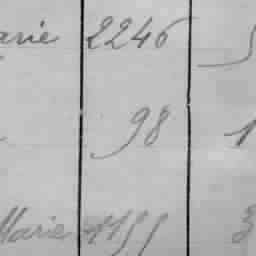 arie 2246 5
98 1
Marie 1155 3